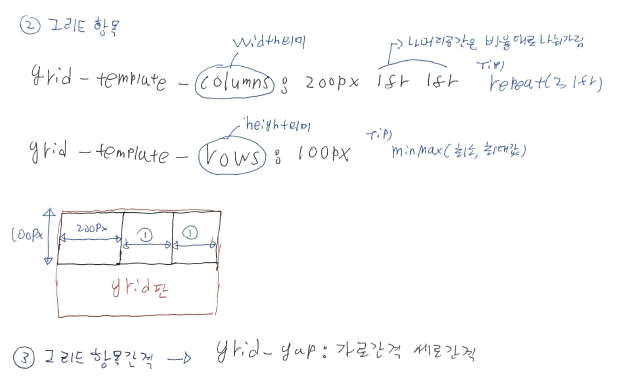 ② 그리드 항목
width의미
나머지공간은 비율대로나눠가짐
grid-template-columns: 200px 1fr 1fr
Tip) repeat(2, 1fr)
height의미
grid-template-rows: 100px
Tip) minmax(최소, 최대값)
100px
200px ① ①
grid판
③ 그리드 항목간격 → grid-gap: 가로간격 세로간격